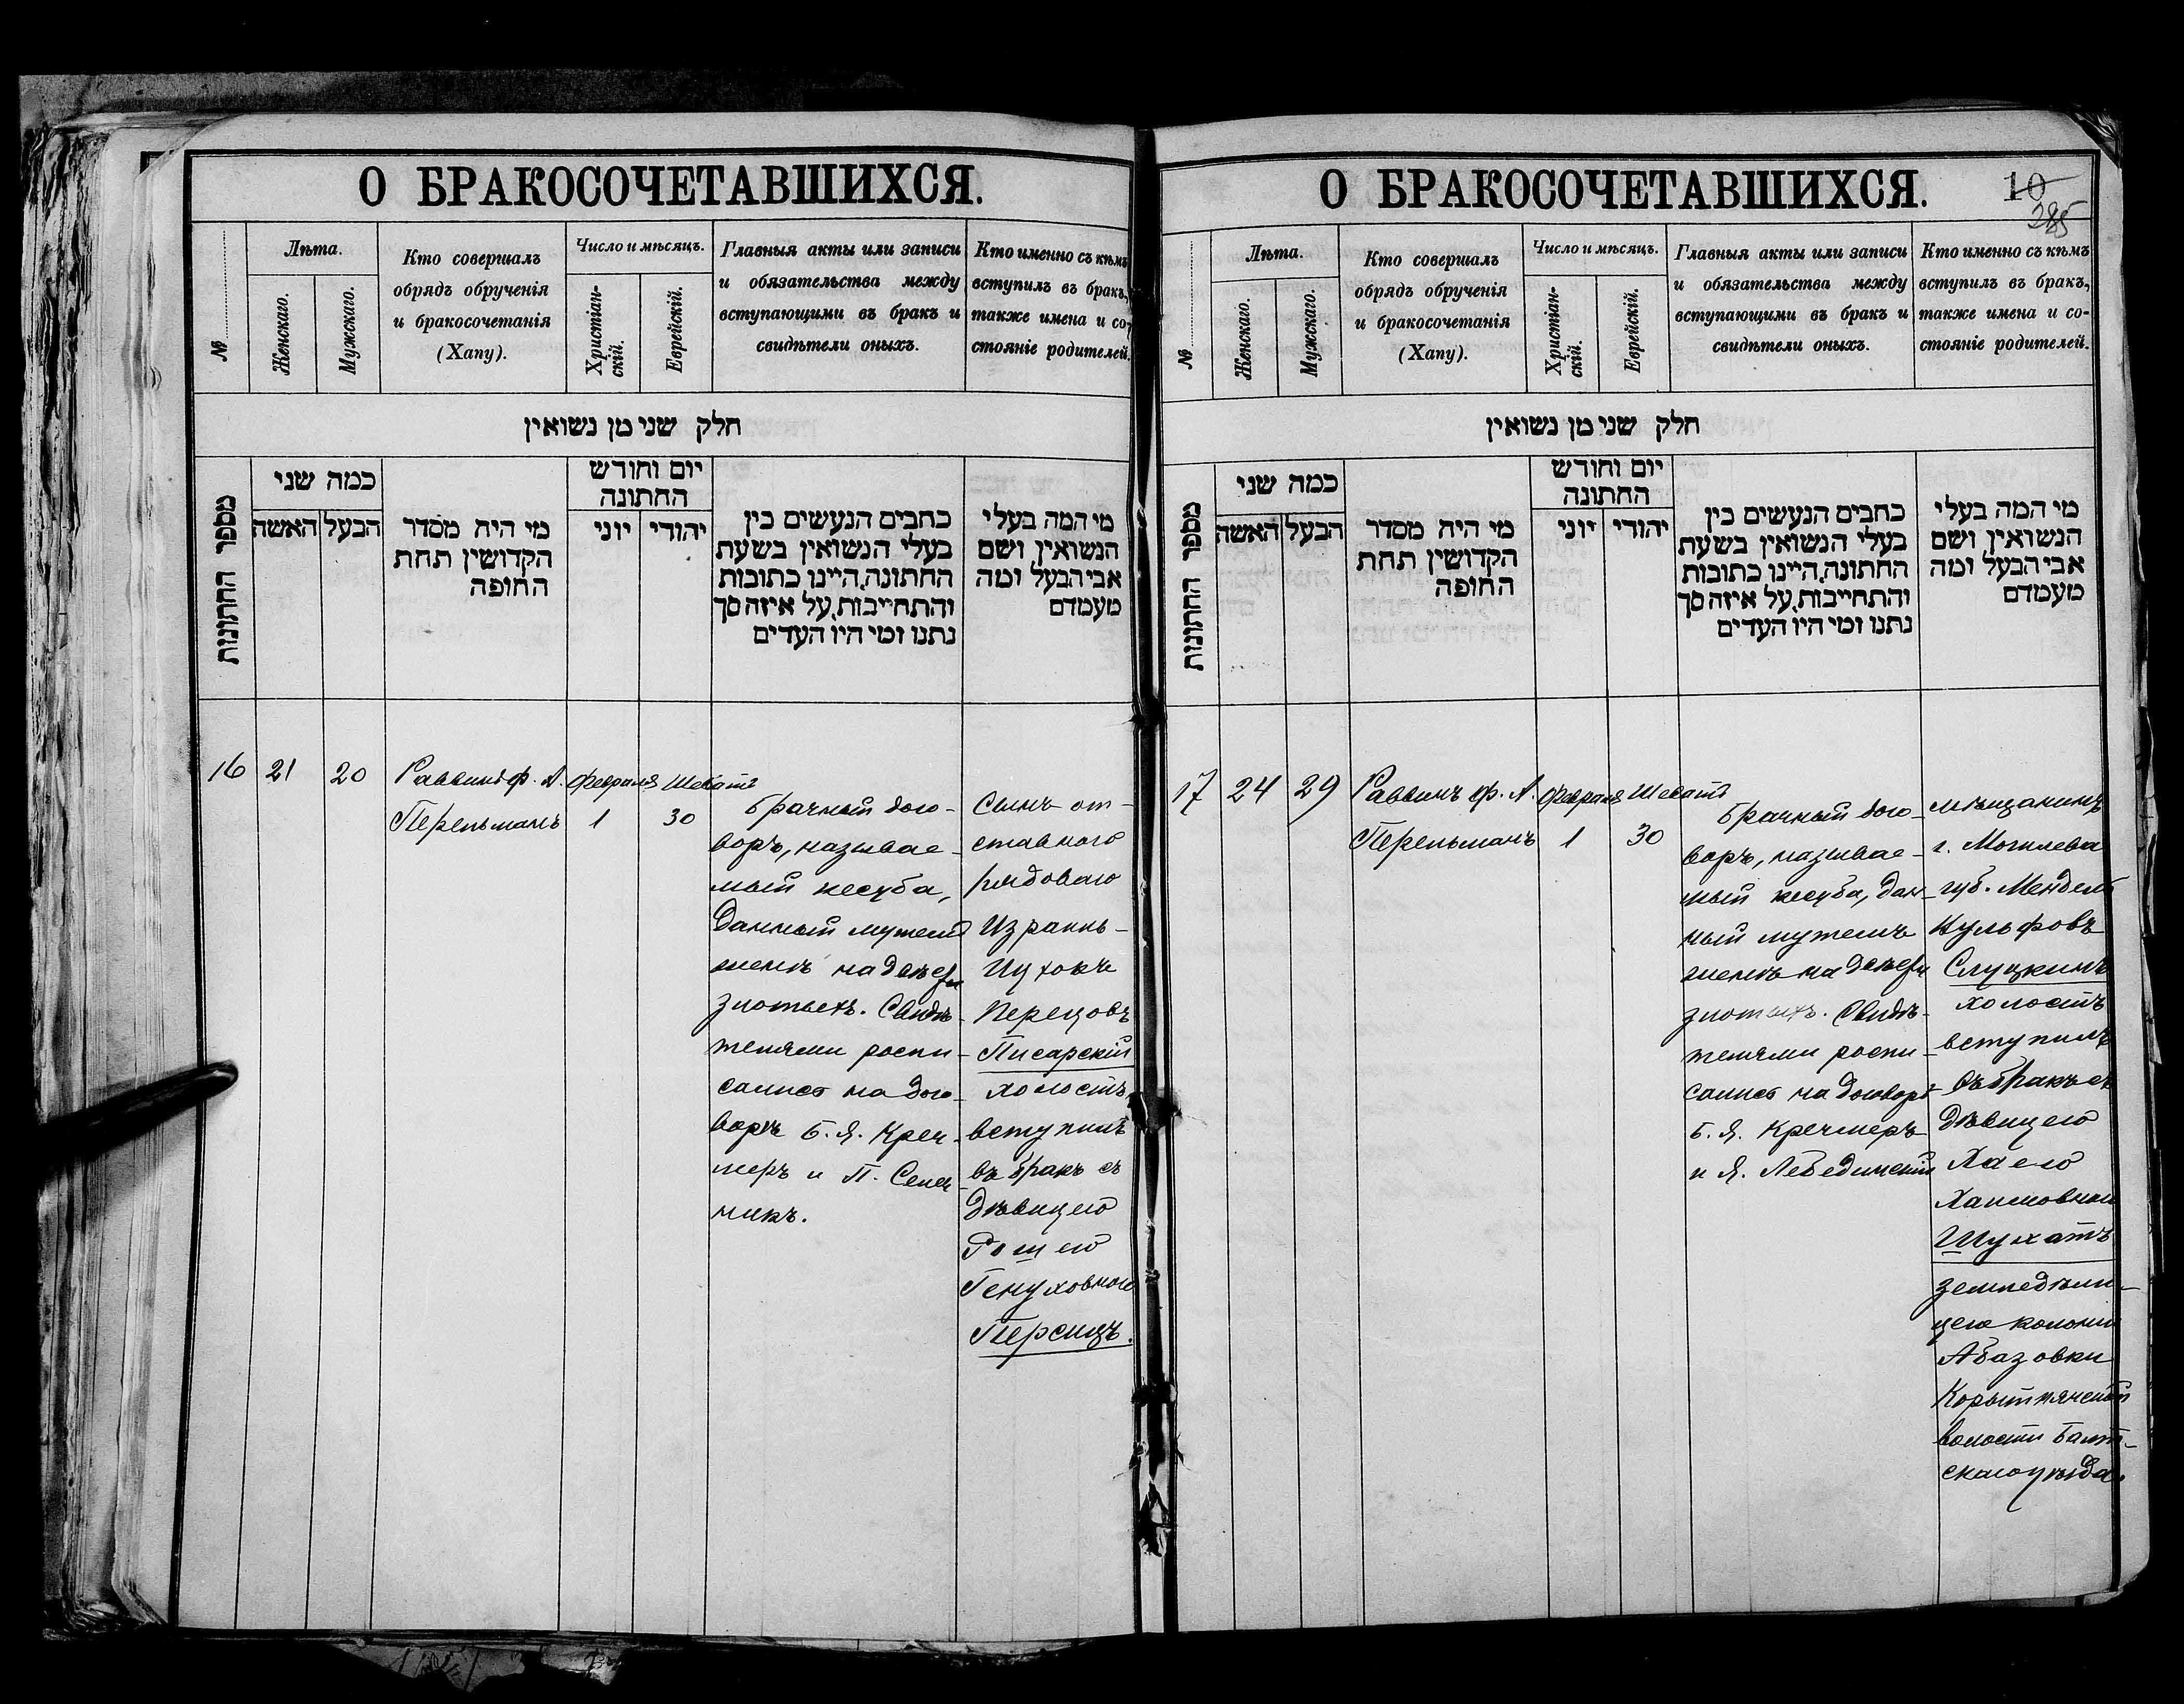 О БРАКОСОЧЕТАВШИХСЯ.
№
Лѣта.
Женскаго.
Мужскаго.
Кто совершалъ
обрядъ обрученія
и бракосочетанія
(Хапу).
Число и мѣсяцъ.
Христіан-
скій.
Еврейскій.
Главныя акты или записи
и обязательства между
вступающими въ бракъ и
свидѣтели оныхъ.
Кто именно съ кѣмъ
вступилъ въ бракъ,
также имена и со-
стояніе родителей.
חלק שני מן נשואין
מספר החתונות
כמה שני
הבעל
האשה
מי היה מסדר
הקדושין תחת
החופה
יום וחודש
החתונה
יהודי
יוני
כתבים הנעשים בין
בעלי הנשואין בשעת
החתונה, היינו כתובות
והתחייבות, על איזה סך
נתנו ומי היו העדים
מי המה בעלי
הנשואין ושם
אבי הבעל ומה
מעמדם
16
21
20
Раввинъ Ф. А.
Перельманъ
Февраля
1
Шебатъ
30
Брачный дого-
воръ, называе-
мый кесуба,
данный мужемъ
женѣ на
злотыхъ. Свидѣ-
телями роспи-
сались на дого-
ворѣ Б. Я. Креч-
меръ и П.
никъ.
Сынъ от-
ставного
рядового
Израиль-
Перецовъ
Писарскій
холостъ
вступилъ
въ бракъ съ
дѣвицею
Генуховною
Персицъ.
О БРАКОСОЧЕТАВШИХСЯ.
10
285
№
Лѣта.
Женскаго.
Мужскаго.
Кто совершалъ
обрядъ обрученія
и бракосочетанія
(Хапу).
Число и мѣсяцъ.
Христіан-
скій.
Еврейскій.
Главныя акты или записи
и обязательства между
вступающими въ бракъ и
свидѣтели оныхъ.
Кто именно съ кѣмъ
вступилъ въ бракъ,
также имена и со-
стояніе родителей.
חלק שני מן נשואין
מספר החתונות
כמה שני
הבעל
האשה
מי היה מסדר
הקדושין תחת
החופה
יום וחודש
החתונה
יהודי
יוני
כתבים הנעשים בין
בעלי הנשואין בשעת
החתונה, היינו כתובות
והתחייבות, על איזה סך
נתנו ומי היו העדים
מי המה בעלי
הנשואין ושם
אבי הבעל ומה
מעמדם
17
24
29
Раввинъ Ф. А.
Перельманъ
Февраля
1
Шебатъ
30
Брачный дого-
воръ, называе-
мый кесуба, дан-
ный мужемъ
женѣ на
злотыхъ. Свидѣ-
телями роспи-
сались на договорѣ
Б. Я. Кречмеръ
и Я. Лебединскій
Мѣщанинъ
г. Могилева
губ. Мендель
Вульфовъ
Слуцкинъ
холостъ
вступилъ
въ бракъ съ
дѣвицею
Хаею
Хаимовною
Шухатъ
земледѣли-
цею колоніи
Абазовки
волости Балт-
скаго уѣзда.